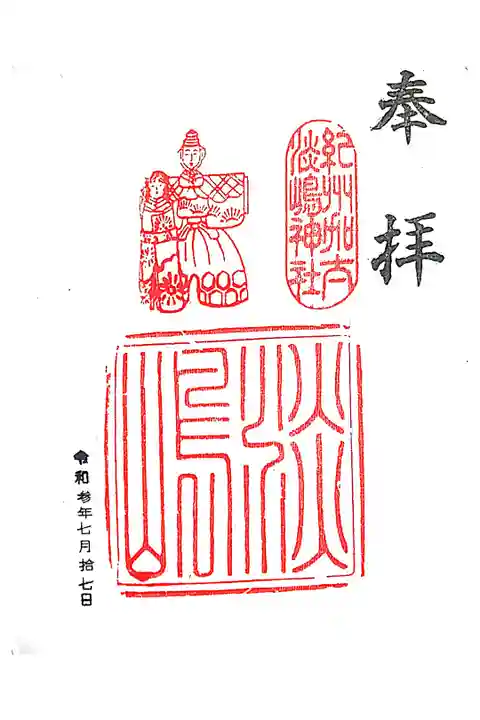 奉拝
紀州加太
淡嶋神社
淡嶋
令和参年七月拾七日